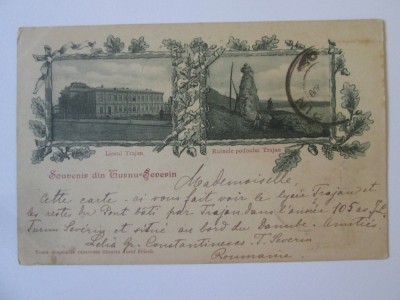 Liceul Trajan
Ruinele podului Trajan
Souvenir din Turnu-Severin
Mademoiselle,
Cette carte-si vous fait voir le lycée Trajan et
les restes du Pont bâti par Trajan dans l'année 105
Turnu Severin est situé au bord du Danube. Amitiés
Lelia Gr. Constantinescu T. Severin
Roumanie